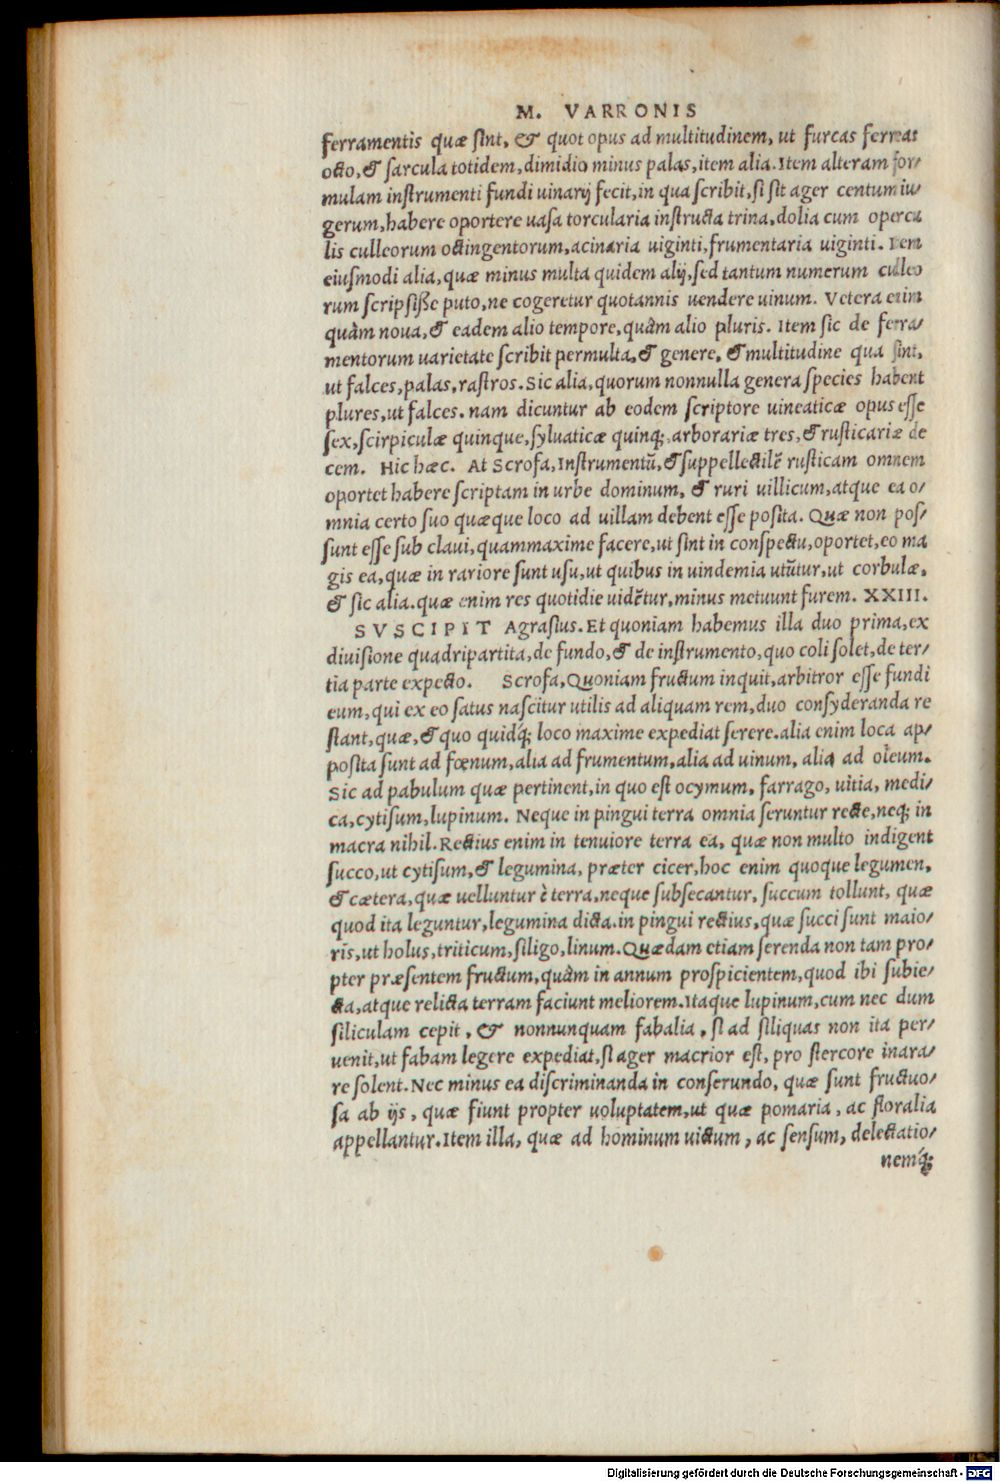 M. VARRONIS
ferramentis quæ sint, & quot opus ad multitudinem, ut furcas ferreas
octo, & sarcula totidem, dimidio minus palas, item alia. Item alteram for/
mulam instrumenti fundi uinarij fecit, in qua scribit, si sit ager centum iu/
gerum, habere oportere uasa torcularia instructa trina, dolia cum opercu
lis culleorum octingentorum, acinaria uiginti, frumentaria uiginti. Item
eiusmodi alia, quæ minus multa quidem alij, sed tantum numerum culleo
rum scripsisse puto, ne cogeretur quotannis uendere uinum. Vetera enim
quàm noua, & eadem alio tempore, quàm alio pluris. Item sic de ferra/
mentorum uarietate scribit permulta, & genere, & multitudine qua sint,
ut falces, palas, rastros. Sic alia, quorum nonnulla genera species habent
plures, ut falces. nam dicuntur ab eodem scriptore uineaticæ opus esse
sex, scirpiculæ quinque, syluaticæ quinq;, arborariæ tres, & rusticariæ de
cem. Hic hæc. At Scrofa, Instrumentū, & suppellectilē rusticam omnem
oportet habere scriptam in urbe dominum, & ruri uillicum, atque ea o/
mnia certo suo quæque loco ad uillam debent esse posita. Quæ non pos/
sunt esse sub claui, quammaxime facere, ut sint in conspectu, oportet, eo ma
gis ea, quæ in rariore sunt usu, ut quibus in uindemia utūtur, ut corbulæ,
& sic alia. quæ enim res quotidie uidētur, minus metuunt furem. XXIII.
SVSCIPIT Agrasius. Et quoniam habemus illa duo prima, ex
diuisione quadripartita, de fundo, & de instrumento, quo coli solet, de ter/
tia parte expecto. Scrofa, Quoniam fructum inquit, arbitror esse fundi
eum, qui ex eo satus nascitur utilis ad aliquam rem, duo consyderanda re
stant, quæ, & quo quidq́; loco maxime expediat serere. alia enim loca ap/
posita sunt ad fœnum, alia ad frumentum, alia ad uinum, alia ad oleum.
Sic ad pabulum quæ pertinent, in quo est ocymum, farrago, uitia, medi/
ca, cytisum, lupinum. Neque in pingui terra omnia seruntur recte, neq; in
macra nihil. Rectius enim in tenuiore terra ea, quæ non multo indigent
succo, ut cytisum, & legumina, præter cicer, hoc enim quoque legumen,
& cætera, quæ uelluntur è terra, neque subsecantur, succum tollunt, quæ
quod ita leguntur, legumina dicta. in pingui rectius, quæ succi sunt maio/
ris, ut holus, triticum, siligo, linum. Quædam etiam serenda non tam pro/
pter præsentem fructum, quàm in annum prospicientem, quod ibi subie/
cta, atque relicta terram faciunt meliorem. Itaque lupinum, cum nec dum
siliculam cepit, & nonnunquam fabalia, si ad siliquas non ita per/
uenit, ut fabam legere expediat, si ager macrior est, pro stercore inara/
re solent. Nec minus ea discriminanda in conserundo, quæ sunt fructuo/
sa ab ijs, quæ fiunt propter uoluptatem, ut quæ pomaria, ac floralia
appellantur. Item illa, quæ ad hominum uictum, ac sensum, delectatio/
nemq́;
Digitalisierung gefördert durch die Deutsche Forschungsgemeinschaft - DFG